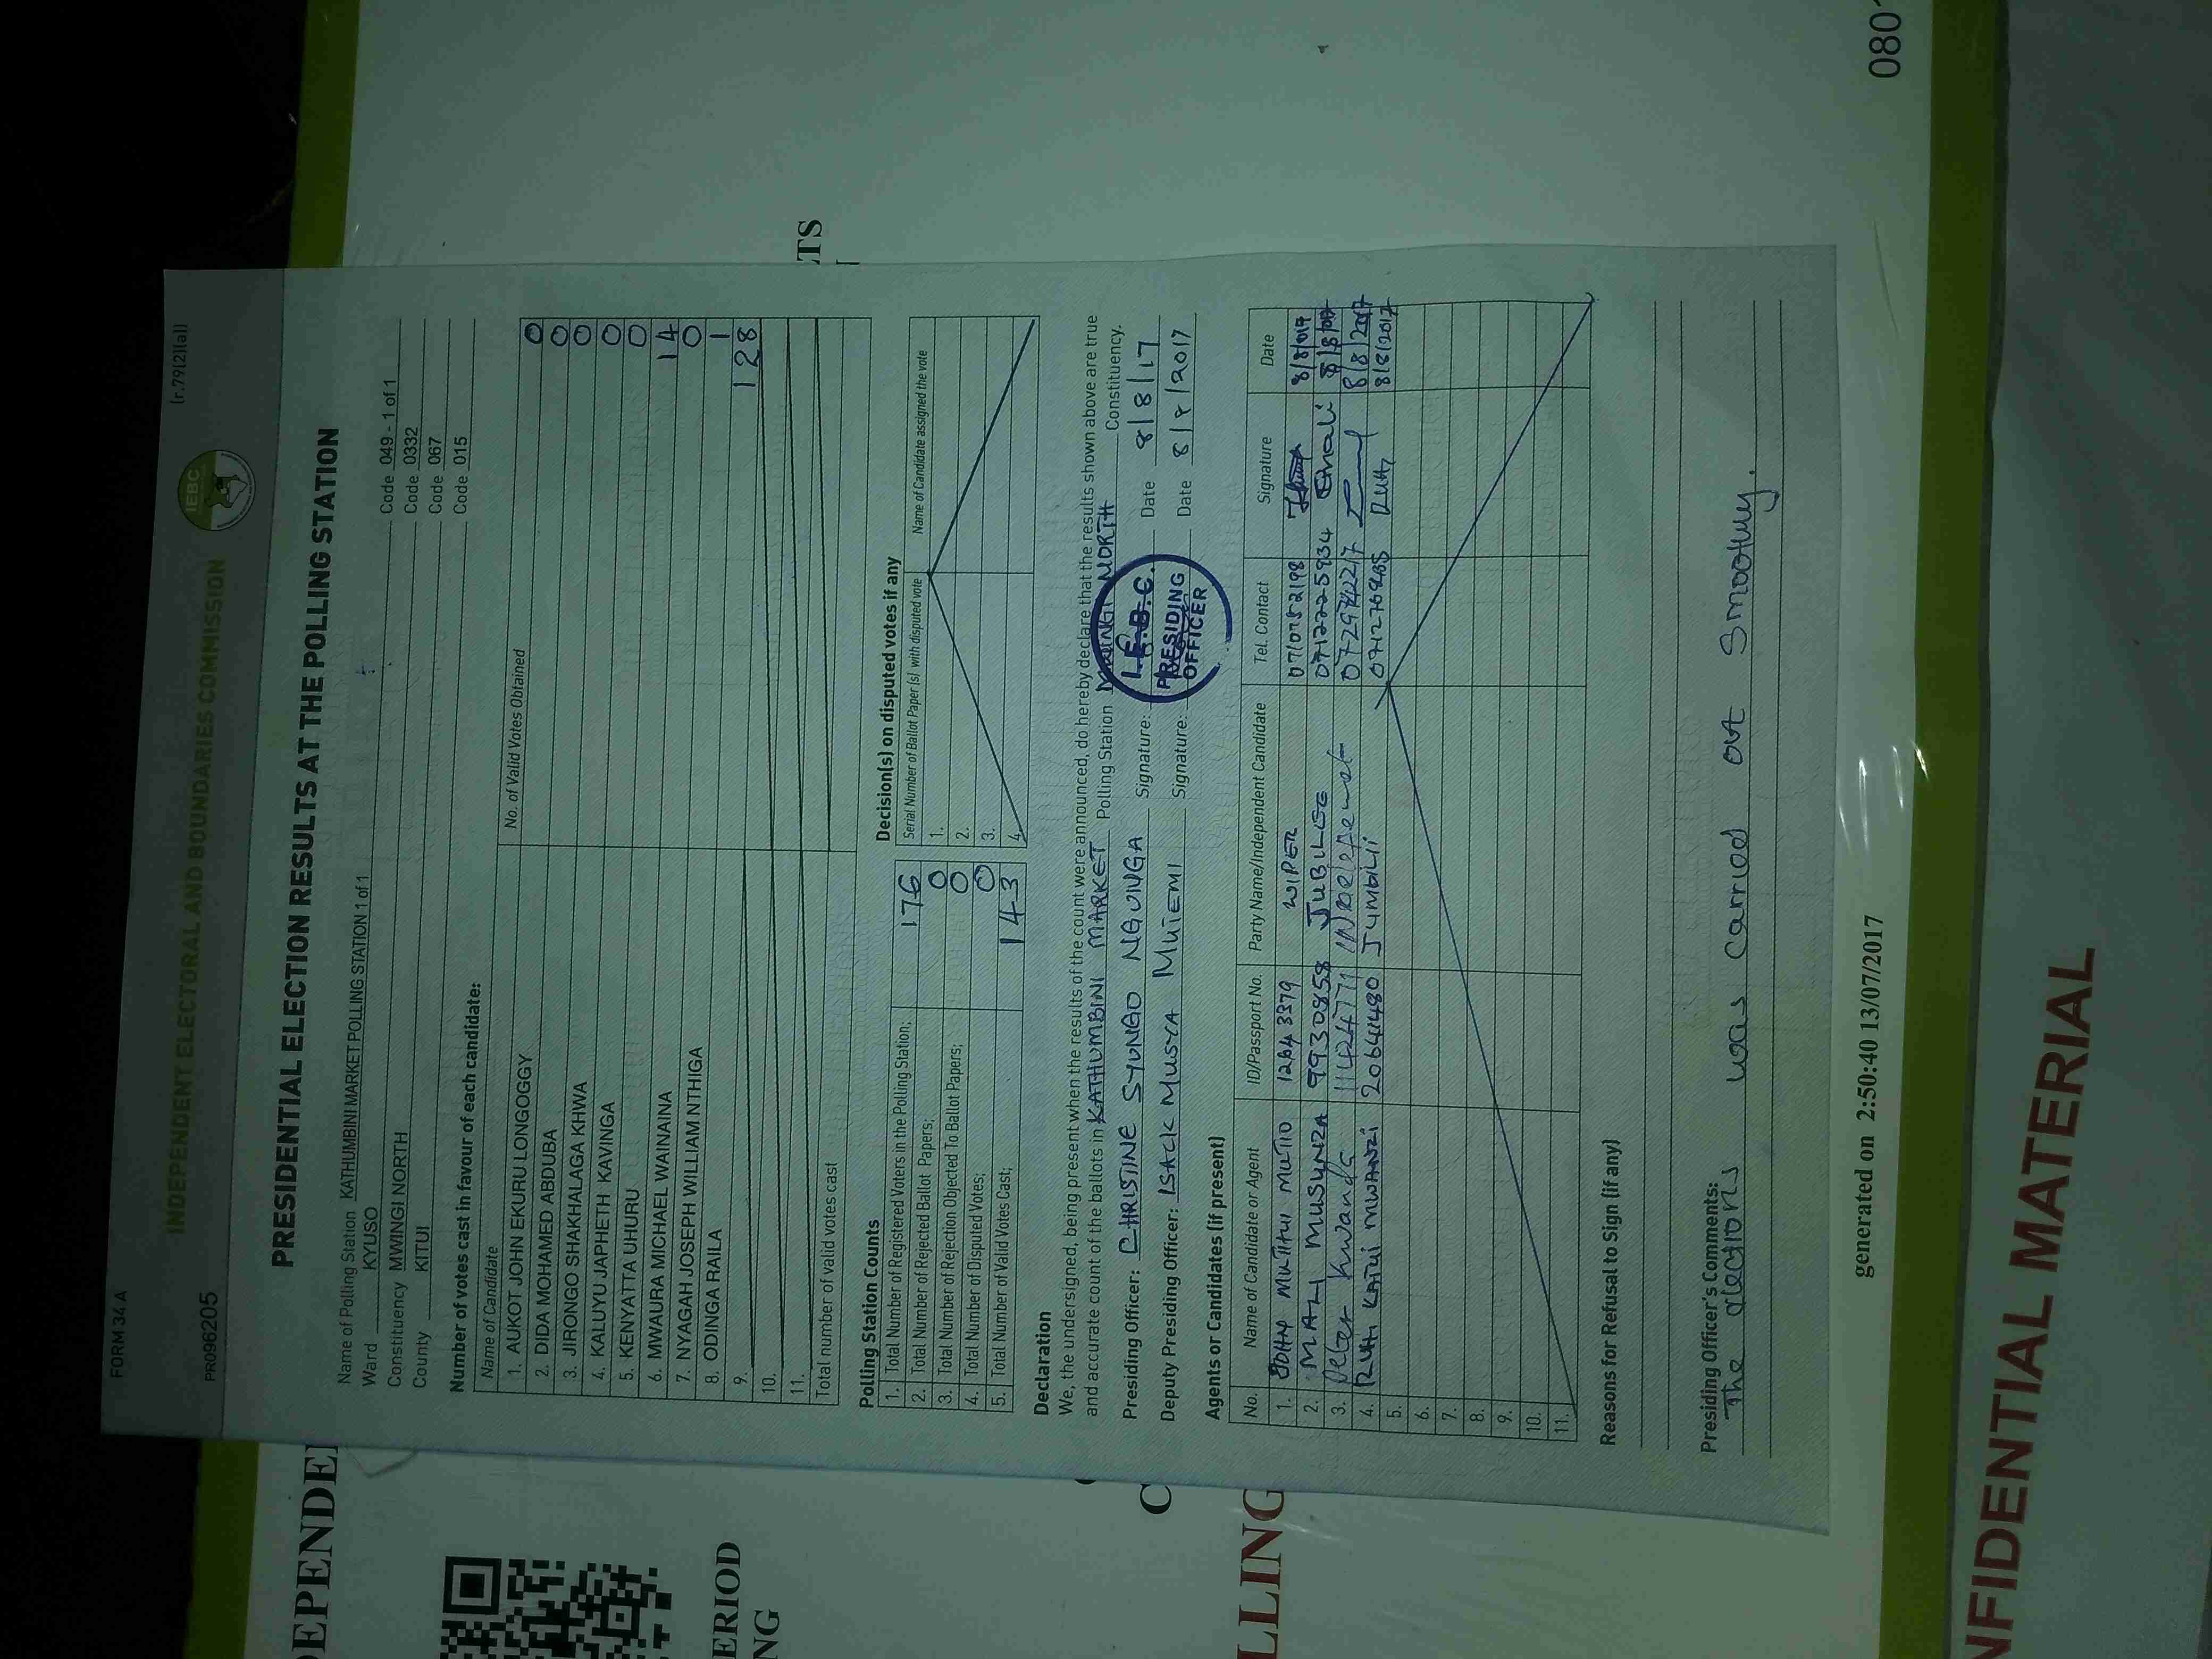 FORM 34 A
(r.79(2)(a))
PR096205
INDEPENDENT ELECTORAL AND BOUNDARIES COMMISSION
IEBC
PRESIDENTIAL ELECTION RESULTS AT THE POLLING STATION
Name of Polling Station KATHUMBINI MARKET POLLING STATION 1 of 1 Code 049 - 1 of 1
Ward KYUSO Code 0332
Constituency MWINGI NORTH Code 067
County KITUI Code 015
Number of votes cast in favour of each candidate:
Name of Candidate No. of Valid Votes Obtained 0
1. AUKOT JOHN EKURU LONGOGGY 0
2. DIDA MOHAMED ABDUBA 0
3. JIRONGO SHAKHALAGA KHWA 0
4. KALUYU JAPHETH KAVINGA 0
5. KENYATTA UHURU 14
6. MWAURA MICHAEL WAINAINA 0
7. NYAGAH JOSEPH WILLIAM NTHIGA 1
8. ODINGA RAILA 128
9.
10.
11.
Total number of valid votes cast
Polling Station Counts
1. Total Number of Registered Voters in the Polling Station; 176
2. Total Number of Rejected Ballot Papers; 0
3. Total Number of Rejection Objected To Ballot Papers; 0
4. Total Number of Disputed Votes; 0
5. Total Number of Valid Votes Cast; 143
Decision(s) on disputed votes if any
Serial Number of Ballot Paper (s) with disputed vote Name of Candidate assigned the vote
1.
2.
3.
4.
Declaration
We, the undersigned, being present when the results of the count were announced, do hereby declare that the results shown above are true
and accurate count of the ballots in KATHUMBINI MARKET Polling Station MWINGI NORTH Constituency.
Presiding Officer: CHRISTINE SYUNGO NGUNGA Signature: Date 8/8/17
Deputy Presiding Officer: ISACK MUSYA MUTEMI Signature: Date 8/8/2017
I.E.B.C.
PRESIDING
OFFICER
Agents or Candidates (if present)
No. Name of Candidate or Agent ID/Passport No. Party Name/Independent Candidate Tel. Contact Signature Date
1. MUTHUI MUTIO 12643379 WIPER 0710782198 8/8/017
2. MALI MUSUNZA 99930858 JUBILEE 0712225934 8/8/017
3. Peter Kwanda 11424771 INdependent 8/8/2017
4. RUTH KATUI MWANZI 20641480 JUMBILII Ruth 8/8/2017
5.
6.
7.
8.
9.
10.
11.
Reasons for Refusal to Sign (if any)
Presiding Officer's Comments:
The elections was carried out smoothly.
DEPENDE
LTS
ERIOD
NG
C
LLING
generated on 2:50:40 13/07/2017
080
NFIDENTIAL MATERIAL